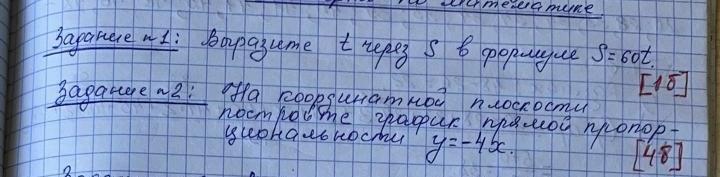 по математике.
Задание №1: Выразите t через S в формуле S=60t.
[1б]
Задание №2: На координатной плоскости
постройте график прямой пропор-
циональности y=-4x.
[4б]